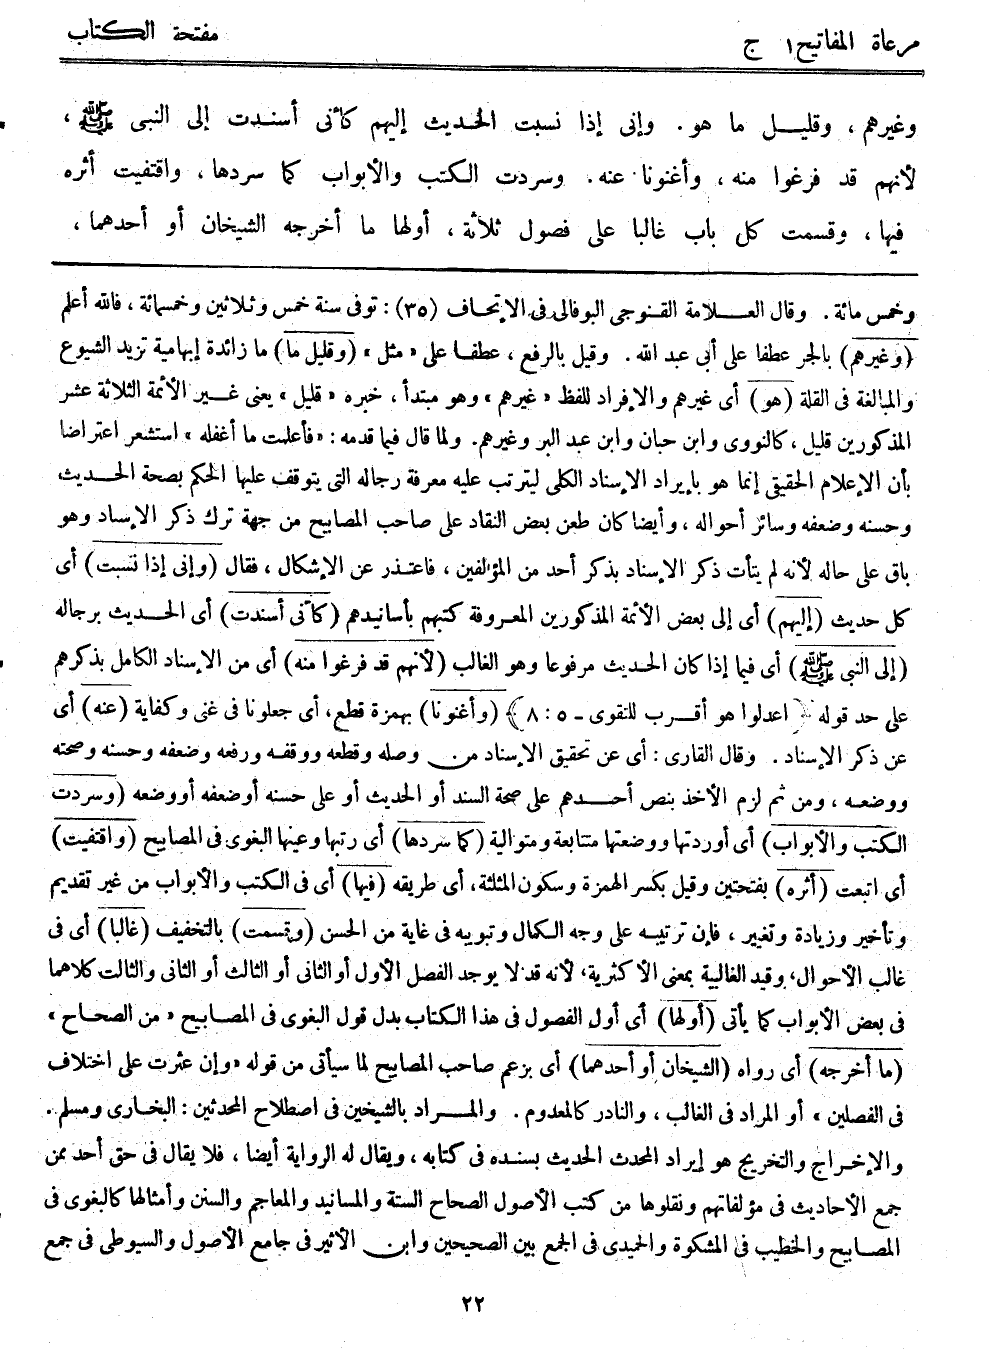 مرعاة المفاتيح ج ١
مفتحة الكتاب
وغيرهم، وقليل ما هو. وإنى إذا نسبت الحديث إليهم كأنى أسندت إلى النبى ﷺ،
لأنهم قد فرغوا منه، وأغنونا عنه. وسردت الكتب والأبواب كما سردها، واقتفيت أثره
فيها، وقسمت كل باب غالبا على فصول ثلاثة، أولها ما أخرجه الشيخان أو أحدهما،
وخمس مائة. وقال العلامة القنوجى البوفالى فى الإتحاف (٣٥): توفى سنة خمس وثلاثين وخمسمائة، فالله أعلم
(وغيرهم) بالجر عطفا على أبى عبد الله. وقيل بالرفع، عطفا على «مثل» (وقليل ما) ما زائدة إبهامية تزيد الشيوع
والمبالغة فى القلة (هو) أى غيرهم والإفراد للفظ «غيرهم» وهو مبتدأ، خبره «قليل» يعنى غير الأئمة الثلاثة عشر
المذكورين قليل، كالنووى وابن حبان وابن عبد البر وغيرهم. ولما قال فيما قدمه: «فأعلمت ما أغفله» استشعر اعتراضا
بأن الإعلام الحقيقى إنما هو بإيراد الإسناد الكلى ليترتب عليه معرفة رجاله التى يتوقف عليها الحكم بصحة الحديث
وحسنه وضعفه وسائر أحواله، وأيضا كان طعن بعض النقاد على صاحب المصابيح من جهة ترك ذكر الإسناد وهو
باق على حاله لأنه لم يتأت ذكر الإسناد بذكر أحد من المؤلفين، فاعتذر عن الإشكال، فقال (وإنى إذا نسبت) أى
كل حديث (إليهم) أى إلى بعض الأئمة المذكورين المعروفة كتبهم بأسانيدهم (كأنى أسندت) أى الحديث برجاله
(إلى النبى ﷺ) أى فيما إذا كان الحديث مرفوعا وهو الغالب (لأنهم قد فرغوا منه) أى من الإسناد الكامل بذكرهم
على حد قوله ﴿اعدلوا هو أقرب للتقوى - ٥: ٨﴾ (وأغنونا) بهمزة قطع، أى جعلونا فى غنى وكفاية (عنه) أى
عن ذكر الإسناد. وقال القارى: أى عن تحقيق الإسناد من وصله وقطعه ووقفه ورفعه وضعفه وحسنه وصحته
ووضعه، ومن ثم لزم الأخذ بنص أحدهم على صحة السند أو الحديث أو على حسنه أوضعفه أووضعه (وسردت
الكتب والأبواب) أى أوردتها ووضعتها متتابعة ومتوالية (كما سردها) أى رتبها وعينها البغوى فى المصابيح (واقتفيت)
أى اتبعت (أثره) بفتحتين وقيل بكسر الهمزة وسكون المثلثة، أى طريقه (فيها) أى فى الكتب والأبواب من غير تقديم
وتأخير وزيادة وتغيير، فإن ترتيبه على وجه الكمال وتبويبه فى غاية من الحسن (وقسمت) بالتخفيف (غالبا) أى فى
غالب الأحوال، وقيد الغالبية بمعنى الأكثرية، لأنه قد لا يوجد الفصل الأول أوالثانى أو الثالث أو الثانى والثالث كلاهما
فى بعض الأبواب كما يأتى (أولها) أى أول الفصول فى هذا الكتاب بدل قول البغوى فى المصابيح «من الصحاح»
(ما أخرجه) أى رواه (الشيخان أو أحدهما) أى بزعم صاحب المصابيح لما سيأتى من قوله «وإن عثرت على اختلاف
فى الفصلين» أو المراد فى الغالب، والنادر كالمعدوم. والمراد بالشيخين فى اصطلاح المحدثين: البخارى ومسلم.
والإخراج والتخريج هو إيراد المحدث الحديث بسنده فى كتابه، ويقال له الرواية أيضا، فلا يقال فى حق أحد ممن
جمع الأحاديث فى مؤلفاتهم ونقلوها من كتب الأصول الصحاح الستة والمسانيد والمعاجم والسنن وأمثالها كالبغوى فى
المصابيح والخطيب فى المشكوة والحميدى فى الجمع بين الصحيحين وابن الأثير فى جامع الأصول والسيوطى فى جمع
٢٢